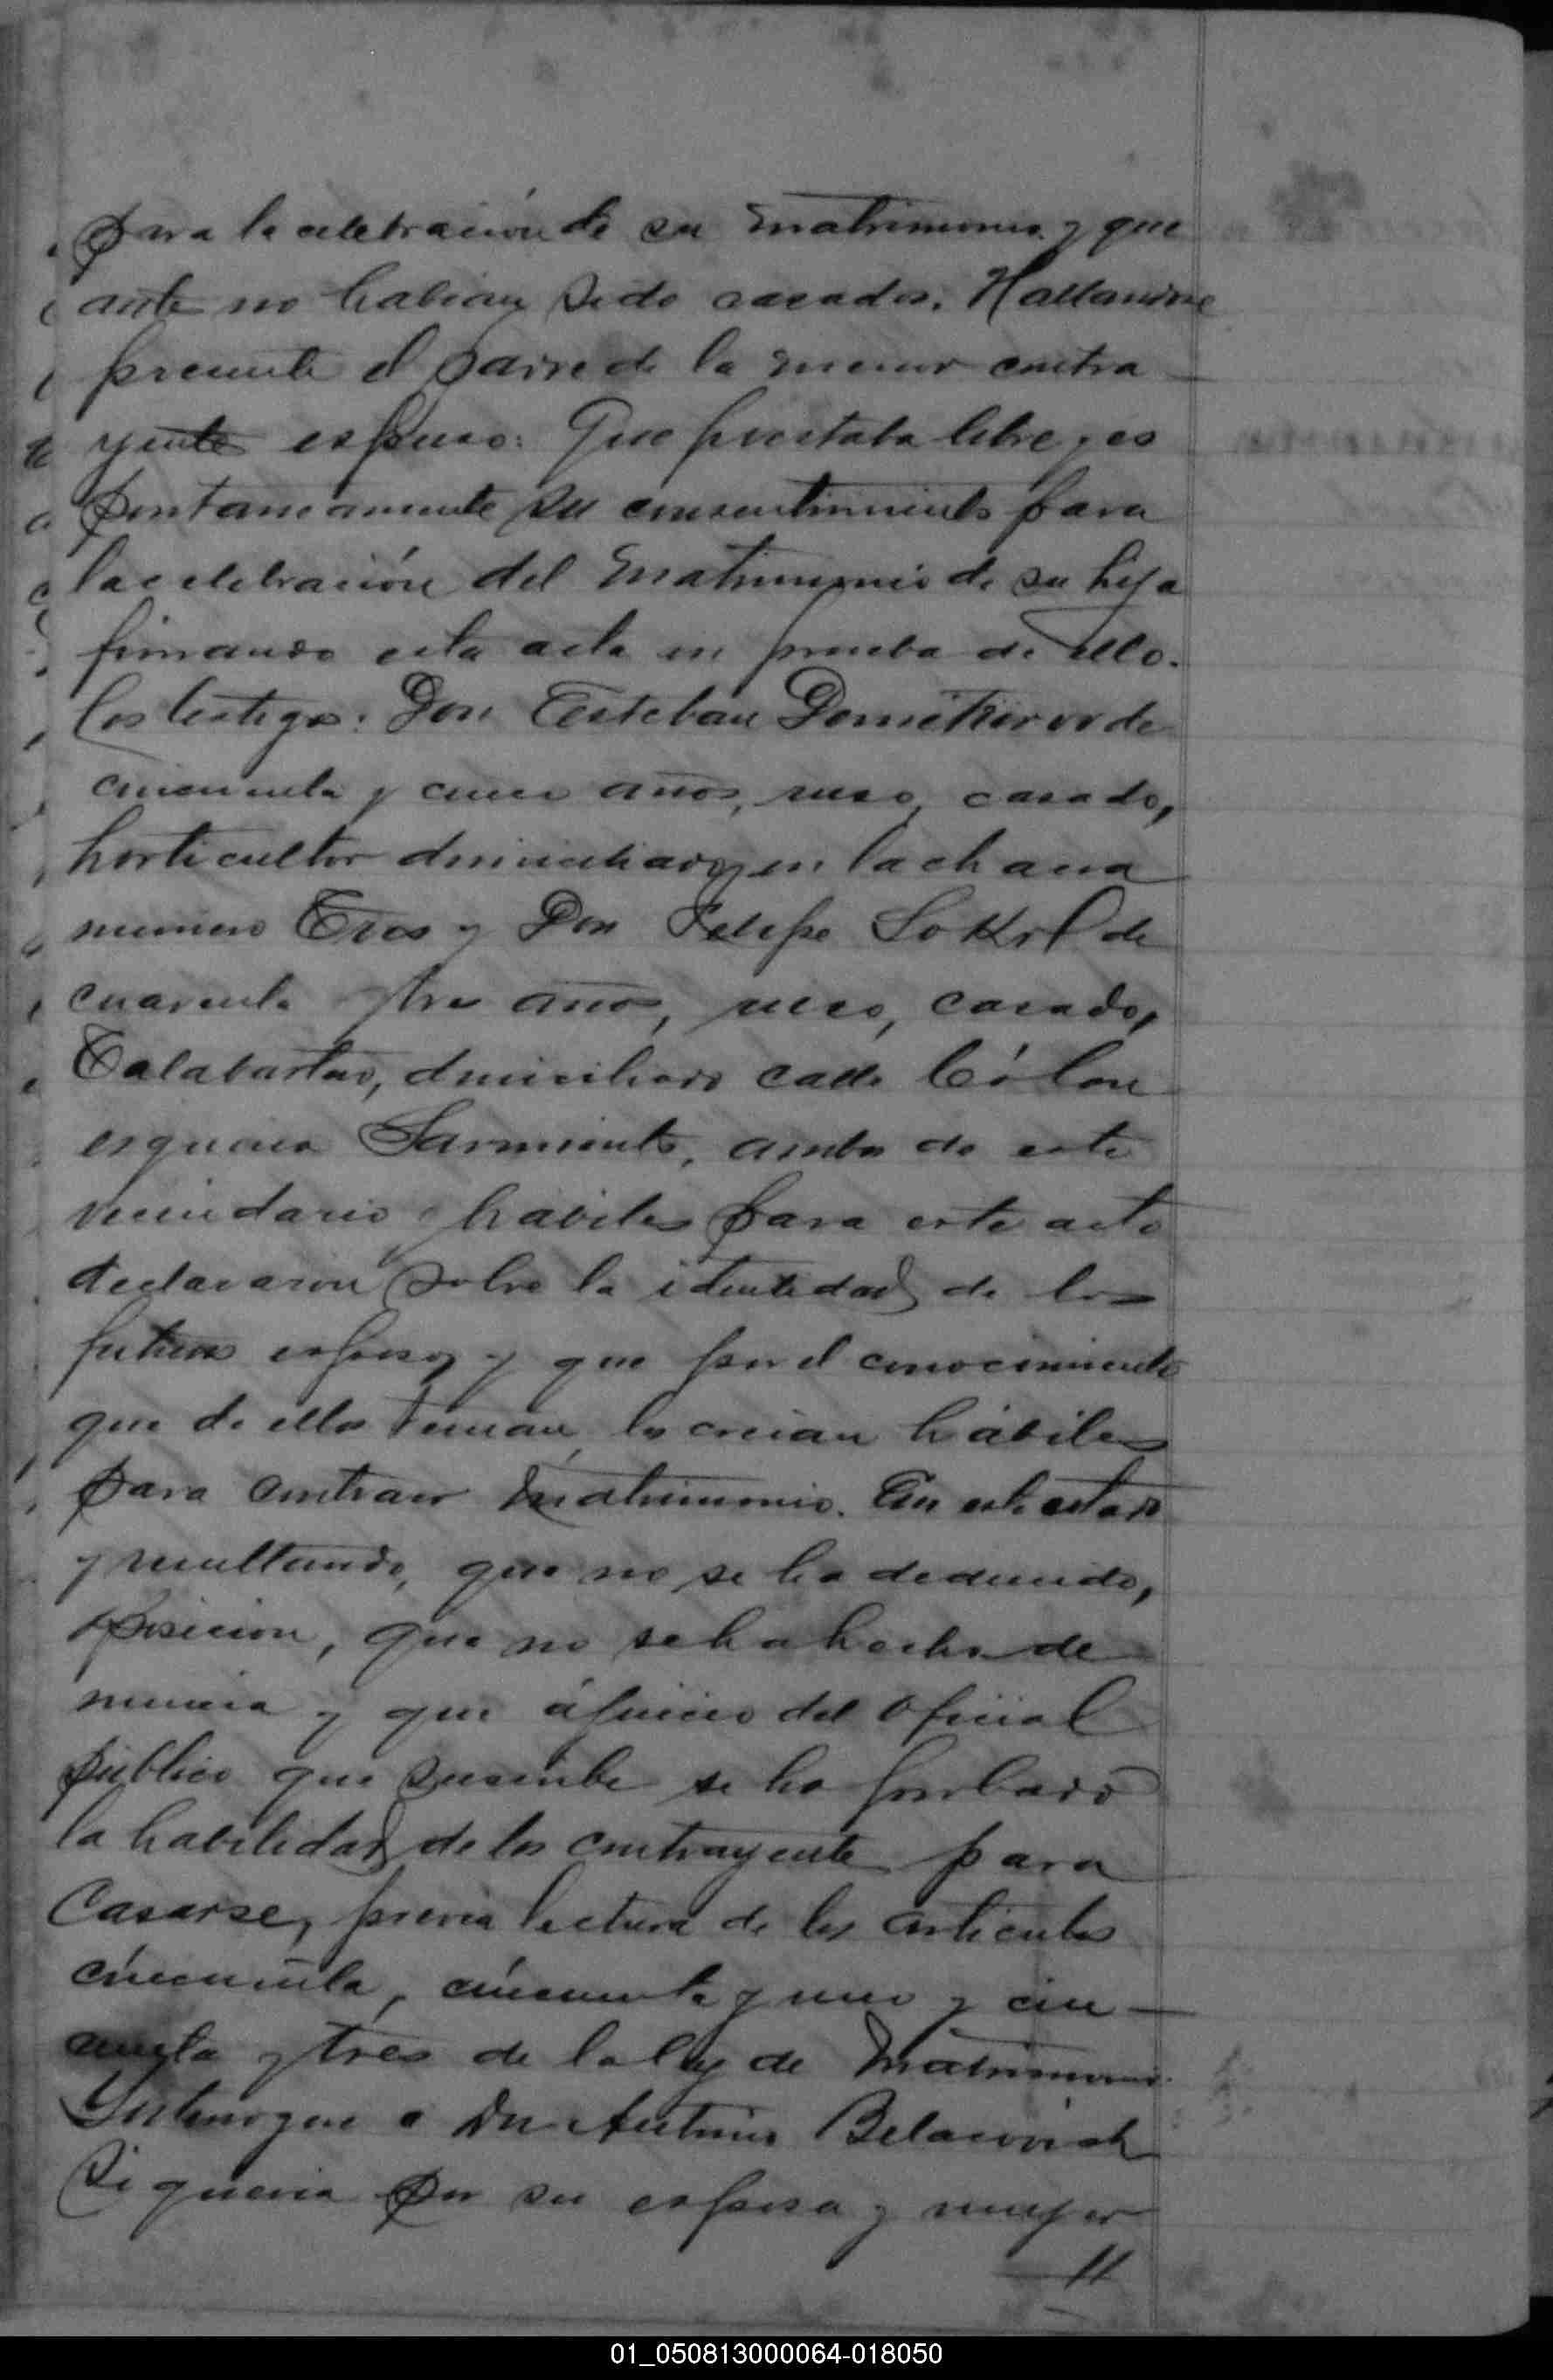 para la celebración de su matrimonio y que
ante no habian sido casados. Hallandose
presente el padre de la menor contra
yente espuso: Que prestaba libre y es
pontaneamente su consentimiento para
la celebración del matrimonio de su hija
firmando esta acta en prueba de ello.
Los testigos: Don Esteban de
cincuenta y cinco años, ruso, casado,
horticultor domiciliado en la chacra
numero Tres y Don Felipe Sokol de
cuarenta y tres años, ruso, casado,
Talabartero, domiciliado calle Cólon
esquina Sarmiento, ambos de este
vecindario y habiles para este acto
declararon sobre la identidad de los
futuros esposos y que por el conocimiento
que de ellos tenian, los creian hábiles
para contraer matrimonio. En este estado
y resultando, que no se ha deducido,
oposicion, que no se ha hecho de
nuncia y que á juicio del oficial
público que suscribe se ha probado
la habilidad de los contrayentes para
Casarse, previa lectura de los articulos
cincuenta, cincuenta y uno y cin
cuenta y tres de la ley de matrimonio
Interrogue a Dn Antonio
Si queria por su esposa y mujer
//
01_050813000064-018050